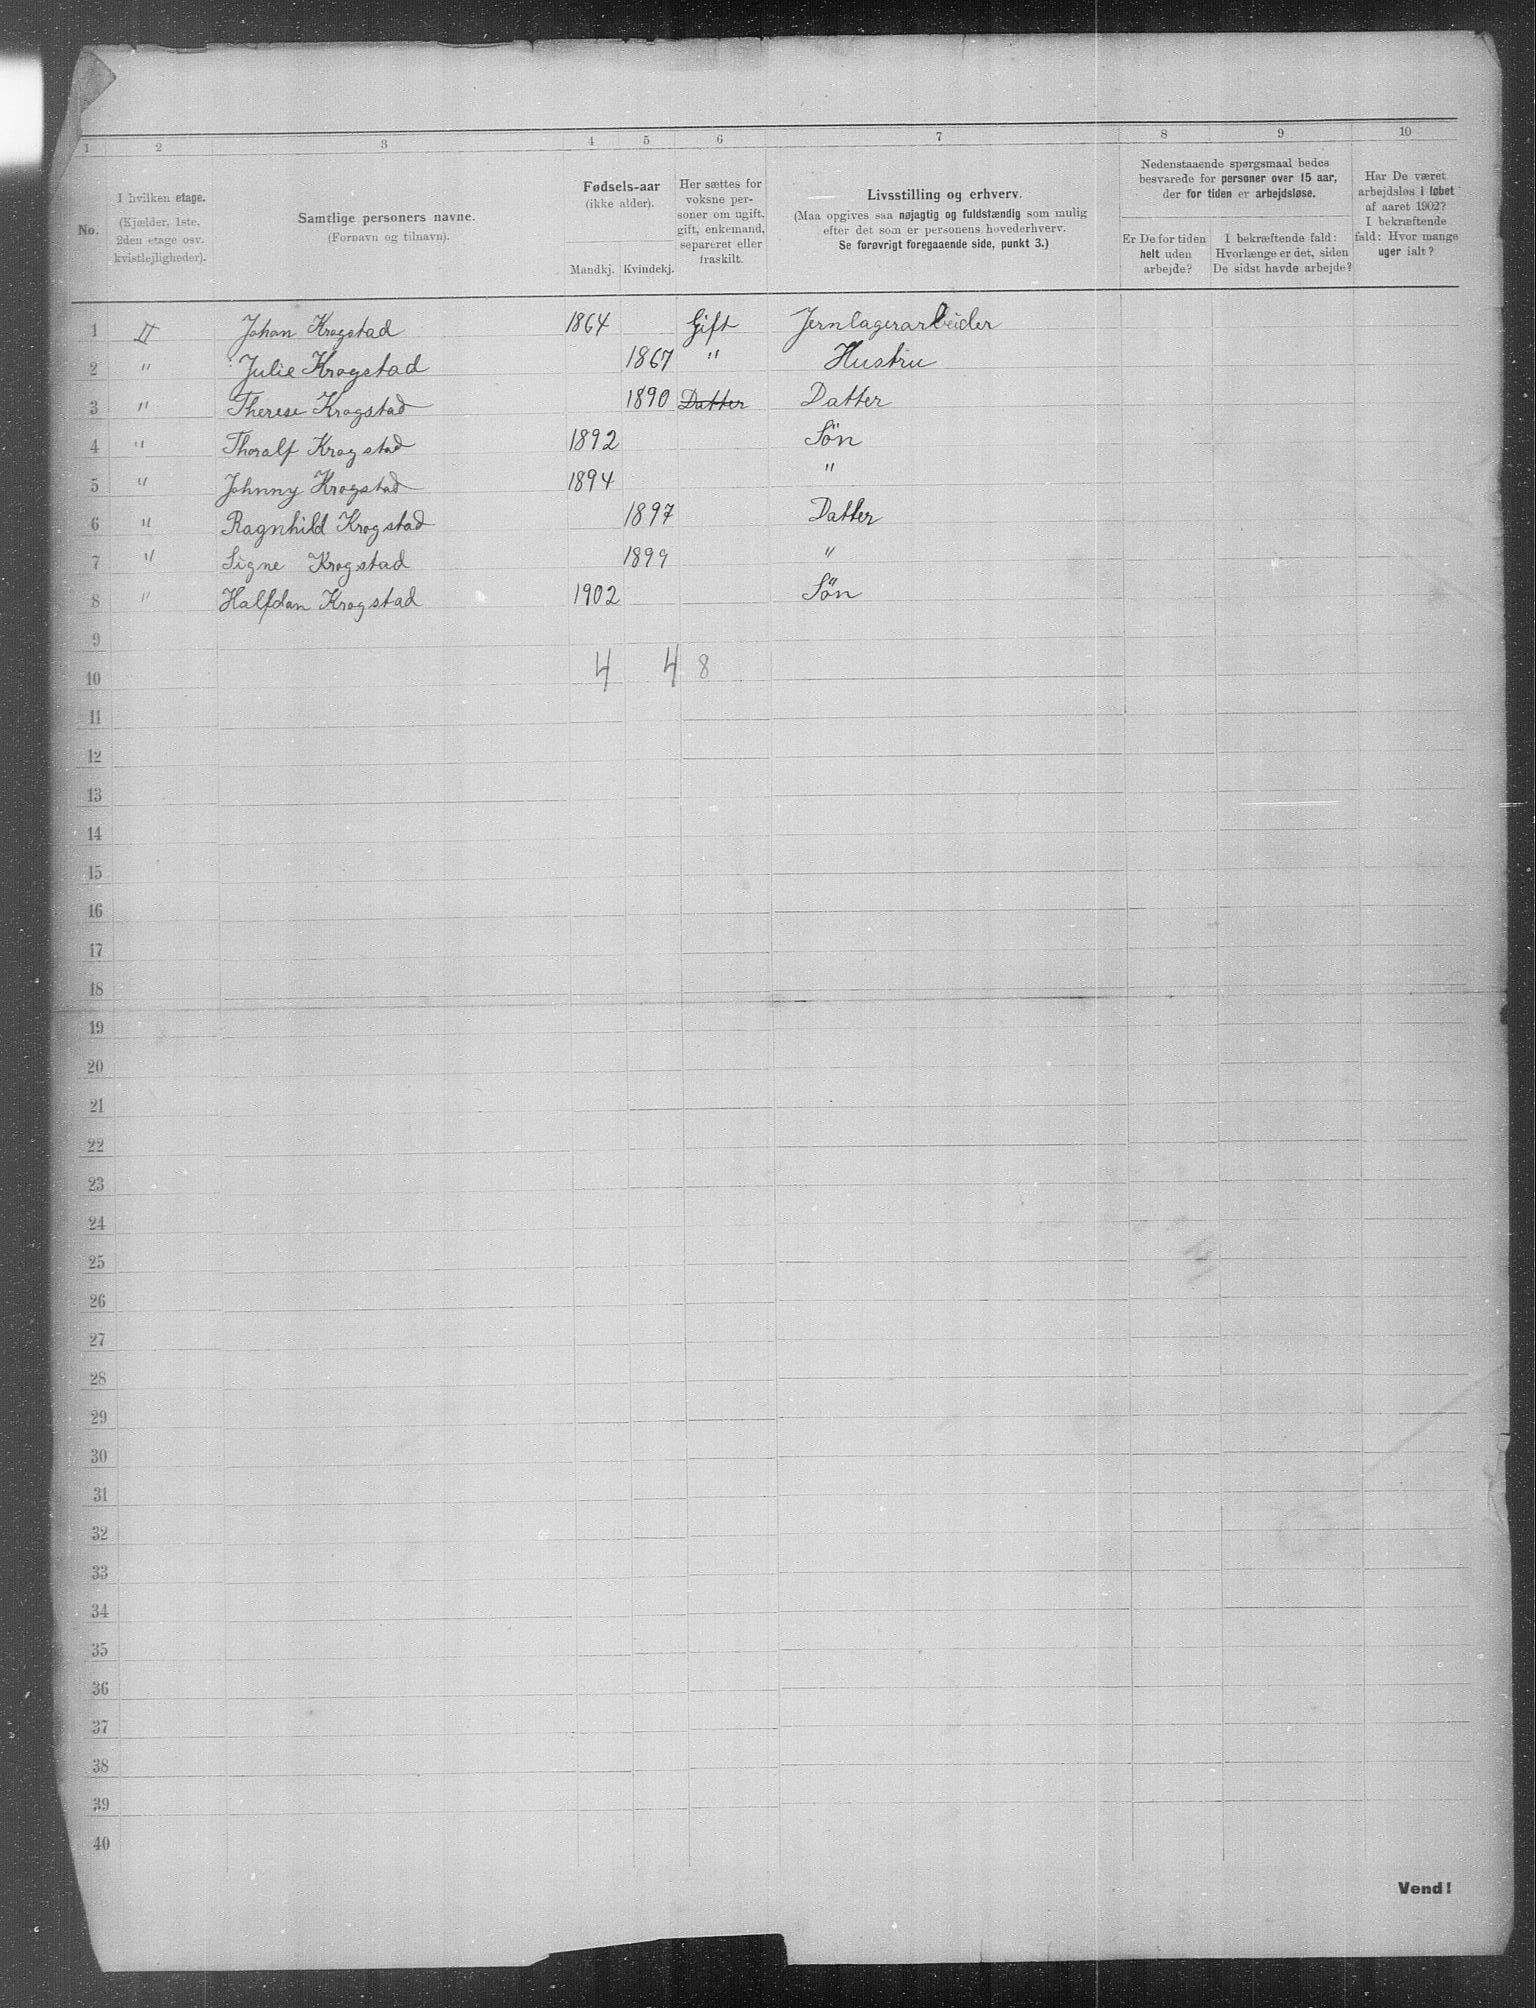 1 2 3 4 5 6 7 8 9 10
No.
I hvilken etage.
(Kjælder, 1ste,
2den etage osv.
kvistlejligheder).
Samtlige personers navne.
(Fornavn og tilnavn).
Fødsels-aar
(ikke alder).
Mandkj. Kvindekj.
Her sættes for
voksne per-
soner om ugift,
gift, enkemand,
separeret eller
fraskilt.
Livsstilling og erhverv.
(Maa opgives saa nøjagtig og fuldstændig som mulig
efter det som er personens hovederhverv.
Se forøvrigt foregaaende side, punkt 3.)
Nedenstaaende spørgsmaal bedes
besvarede for personer over 15 aar,
der for tiden er arbejdsløse.
Er De for tiden
helt uden
arbejde?
I bekræftende fald:
Hvorlænge er det, siden
De sidst havde arbejde?
Har De været
arbejdsløs i løbet
af aaret 1902?
I bekræftende
fald: Hvor mange
uger ialt?
1 II Johan Krogstad 1864 Gift Jernlagerarbeider
2 " Julie Krogstad 1867 " Hustru
3 " Therese Krogstad 1890 Datter Datter
4 " Thoralf Krogstad 1892 Søn
5 " Johnny Krogstad 1894 "
6 " Ragnhild Krogstad 1897 Datter
7 " Signe Krogstad 1899 "
8 " Halfdan Krogstad 1902 Søn
9
10 4 4 8
11
12
13
14
15
16
17
18
19
20
21
22
23
24
25
26
27
28
29
30
31
32
33
34
35
36
37
38
39
40
Vend!